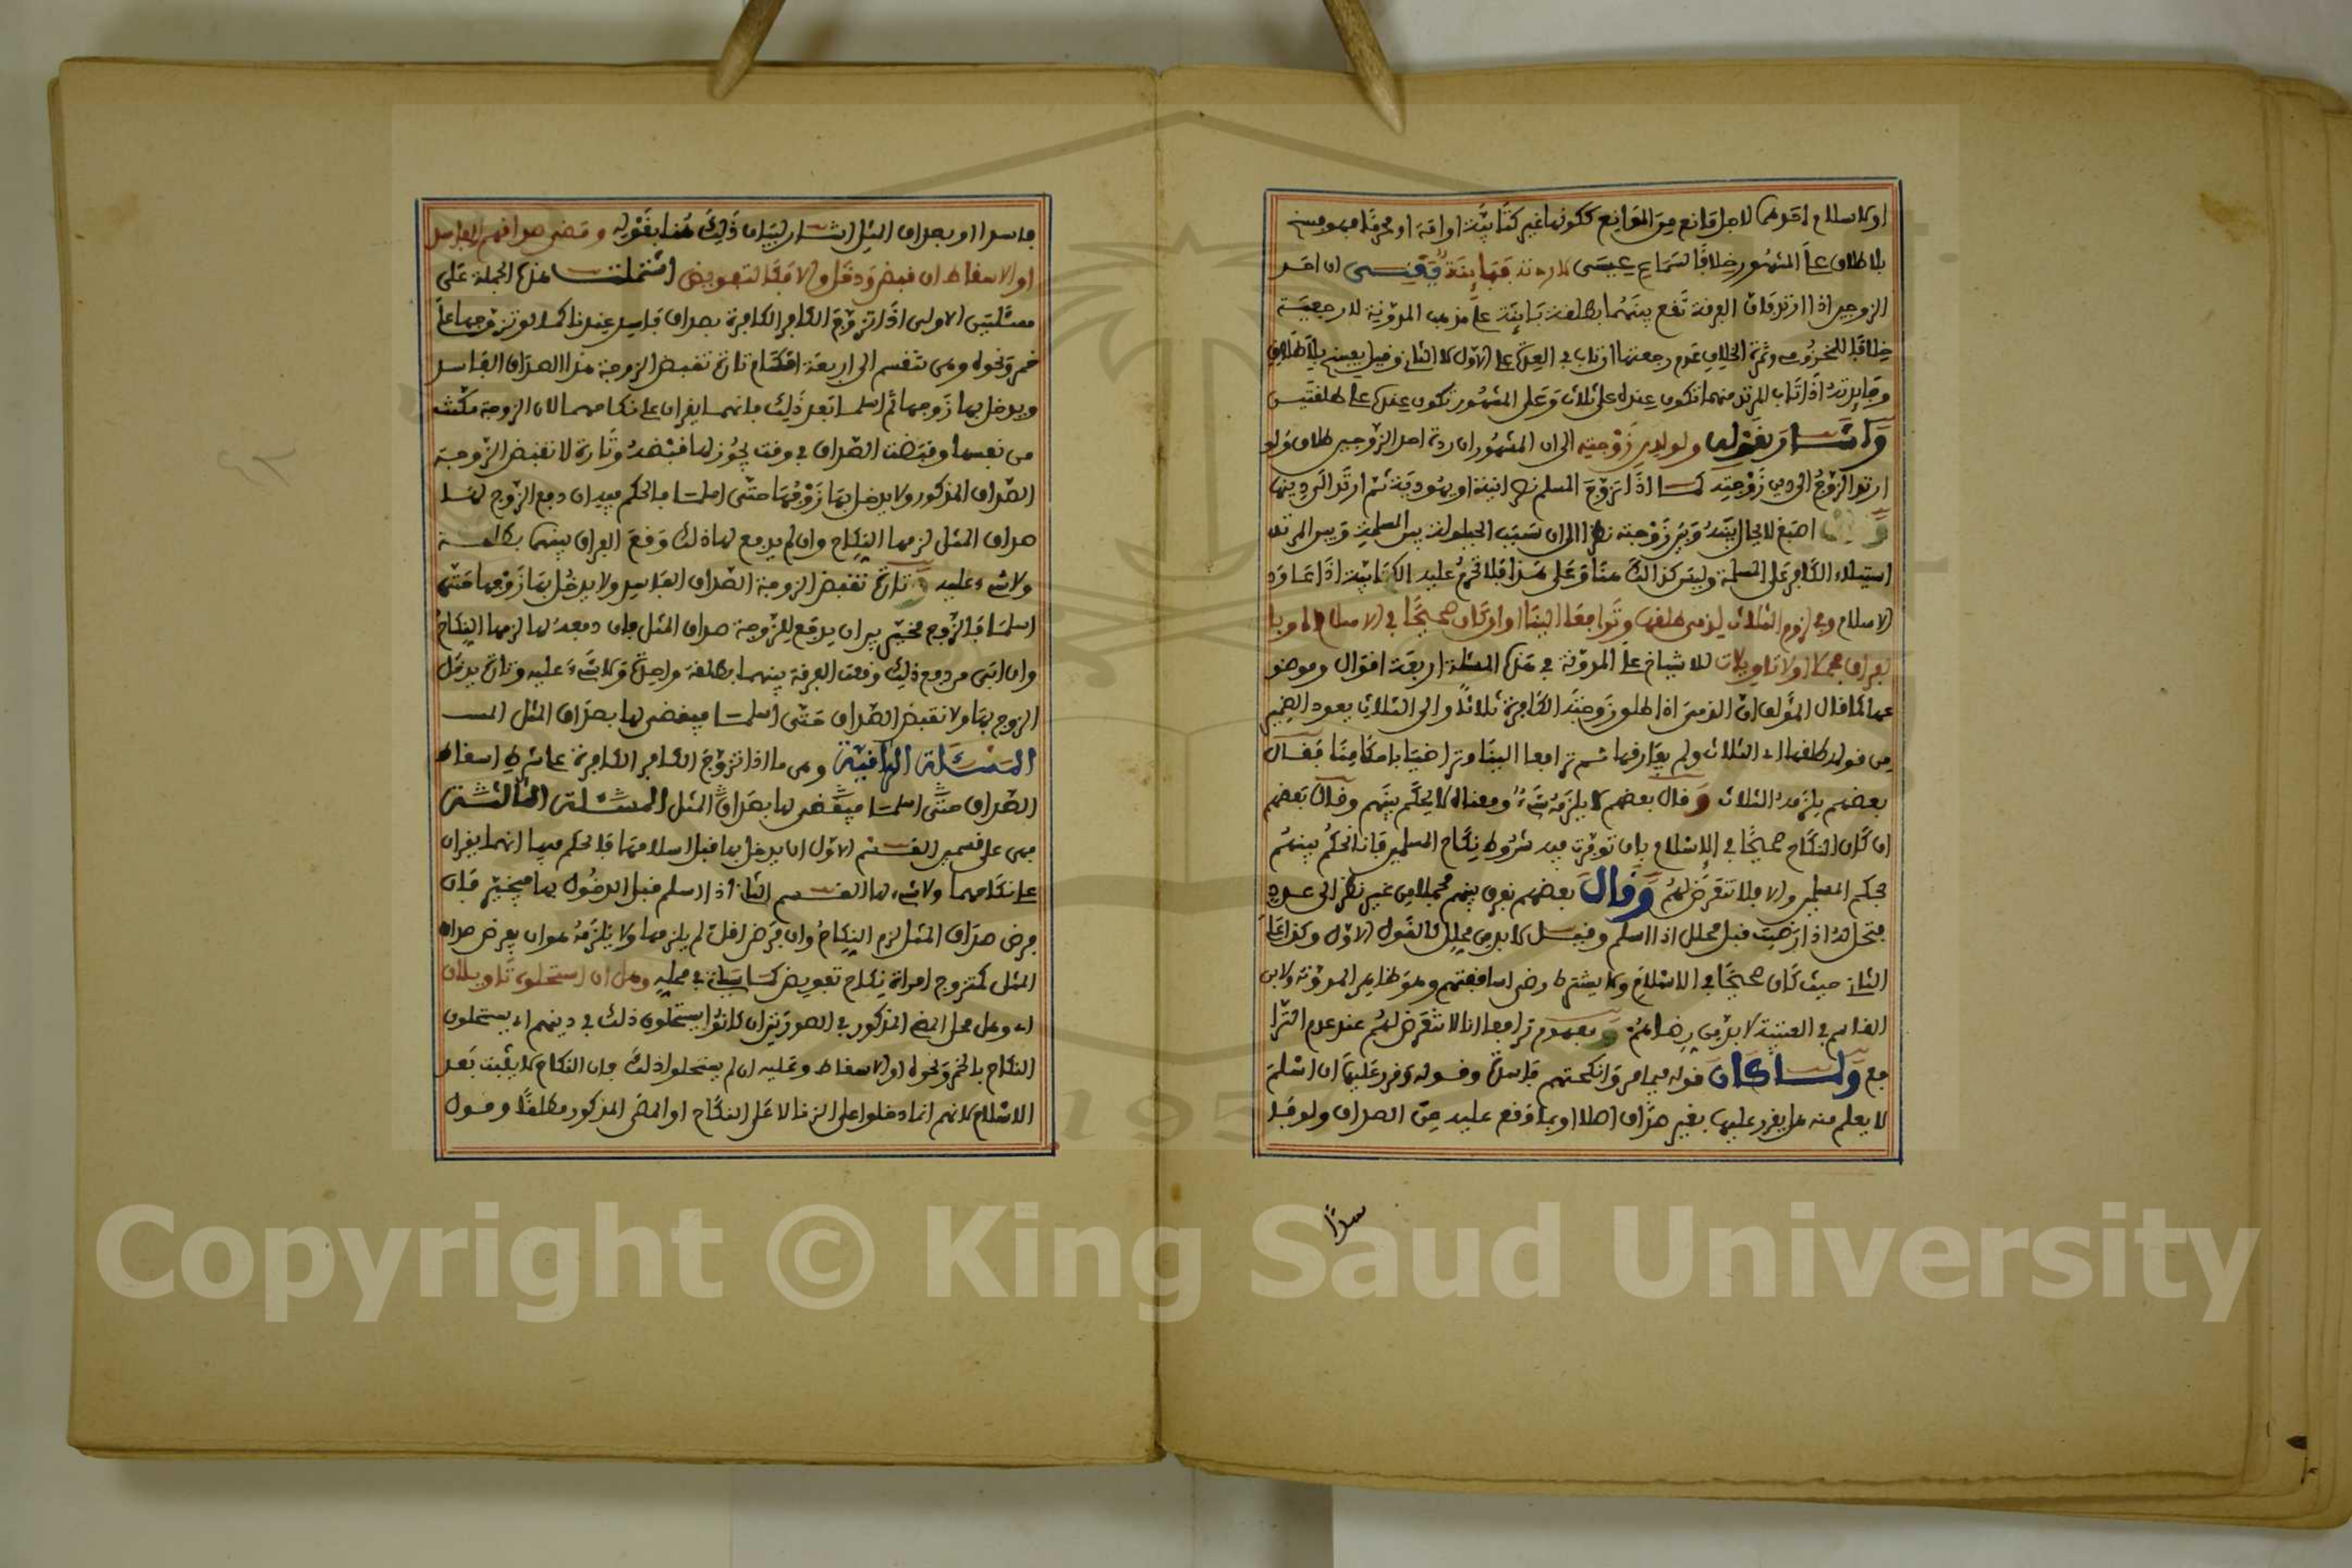 او كلا سلام احدهما لاجل مانع من الموانع ككونها غير كتابية او امة او محرما فهو فسخ
بلا طلاق على المشهور خلافا لسماع عيسى لا ردته فبائنة ففيسى ان احد
الزوجين اذا ارتد فان الفرقة تقع بينهما بطلقة بائنة على مذهب المدونة لا رجعية
خلافا للمخزومي وثمرة الخلاف عدم رجعتها ان تاب في العدة على الاول لا الثاني وقيل يفسخ بلا طلاق
وفايدته اذا تاب المرتد منهما تكون عنده على ثلاث وعلى المشهور تكون عنده على طلقتين
واشار بقوله ولو لدين زوجته الى ان المشهور ان ردة احد الزوجين طلاق ولو
ارتد الزوج الى دين زوجته كما اذا تزوج المسلم نصرانية او يهودية ثم ارتد الى دينها
وقال اصبغ لا يحال بينه وبين زوجته نظرا الى ان سبب الحيلولة بين المسلمة وبين المرتد
استيلاء الكافر على المسلمة وليس كذالك هنا وعلى هذا فلا تحرم عليه الكتابية اذا عاود
الاسلام وفي لزوم الثلاث لذمي طلقها وترافعا الينا او ان كان صحيحا في الاسلام او بالفراق
مجملا او لا تاويلات للاشياخ على المدونة في هذه المسئلة اربعة اقوال وموضو
عها كما قال المؤلف ان الذمي اذا طلق زوجته الكافرة ثلاثا والى الثلاث يعود الضمير
من قوله طلقها اي الثلاث ولم يفارقها ثم ترافعا الينا وتراضيا باحكامنا فقال
بعضهم يلزمه الثلاث وقال بعضهم لا يلزمه شيء ومعناه لا يحكم بينهم وقال بعضهم
ان كان النكاح صحيحا في الاسلام بان توفرت فيه شروط نكاح المسلمين فانا نحكم بينهم
بحكم المسلمين والا فلا نتعرض لهم وقال بعضهم نفرق بينهم مجملا من غير نظر الى عدد
فتحل له اذا رضيت قبل محلل اذا اسلم وقيل لا بد من محلل كالقول الاول وكذا على
الثاني حيث كان صحيحا في الاسلام ولا يشترط رضى اساقفتهم وهو ظاهر المدونة ولابن
القاسم في العتبية لا بد من رضاهم ويفهم من ترافعا انا لا نتعرض لهم عند عدم الترا
فع ولما كان قوله فيما مر وانكحتهم فاسدة وقوله وقرر عليها ان اسلم
لا يعلم منه هل يقرر عليها بغير صداق اصلا او بما وقع عليه من الصداق ولو فا
سدا
فاسدا او بصداق المثل اشار لبيان ذلك هنا بقوله ومضى صداقهم الفاسد
او الاسقاط ان قبض ودخل والا فكالتفويض اشتملت هذه الجملة على
مسئلتين الاولى اذا تزوج الكافر الكافرة بصداق فاسد عندنا كما لو تزوجها على
خمر ونحوه وهي تنقسم الى اربعة اقسام تارة تقبض الزوجة هذا الصداق الفاسد
ويدخل بها زوجها ثم اسلما بعد ذلك فانهما يقران على نكاحهما لان الزوجة مكنت
من نفسها وقبضت الصداق في وقت يجوز لها قبضه وتارة لا تقبض الزوجة
الصداق المذكور ولا يدخل بها زوجها حتى اسلما فالحكم فيه ان دفع الزوج لها
صداق المثل لزمها النكاح وان لم يدفع لها ذلك وقع الفراق بينهما بطلقة
ولا شيء عليه وتارة تقبض الزوجة الصداق الفاسد ولا يدخل بها زوجها حتى
اسلما فالزوج مخير بين ان يدفع للزوجة صداق المثل فان دفعه لها لزمها النكاح
وان ابى من دفع ذلك وقعت الفرقة بينهما بطلقة واحدة ولا شيء عليه وتارة يدخل
الزوج بها ولا تقبض الصداق حتى اسلما فيقضى لها بصداق المثل
المسئلة الثانية وهي ما اذا تزوج الكافر الكافرة على شرط اسقاط
الصداق حتى اسلما فيقضى لها بصداق المثل المسئلة الثالثة
فهي على قسمين القسم الاول ان يدخل بها قبل اسلامهما فالحكم فيها انهما يقران
على نكاحهما ولا شيء لها القسم الثاني اذا اسلم قبل الدخول بها فيخير فان
فرض صداق المثل لزم النكاح وان فرض اقل لم يلزمها ولا يلزمه هو ان يفرض صداق
المثل كمتزوج امراة نكاح تفويض كما سياتي في محله وهل ان استحلوه تاويلان
اي وهل محل المضي المذكور في الصورتين ان كانوا يستحلون ذلك في دينهم اي يستحلون
النكاح بالخمر ونحوه او الاسقاط وعليه ان لم يستحلوا ذلك فان النكاح لا يثبت بعد
الاسلام لانهم انما دخلوا على الزنا لا على النكاح او المضي المذكور مطلقا وقول
Copyright © King Saud University